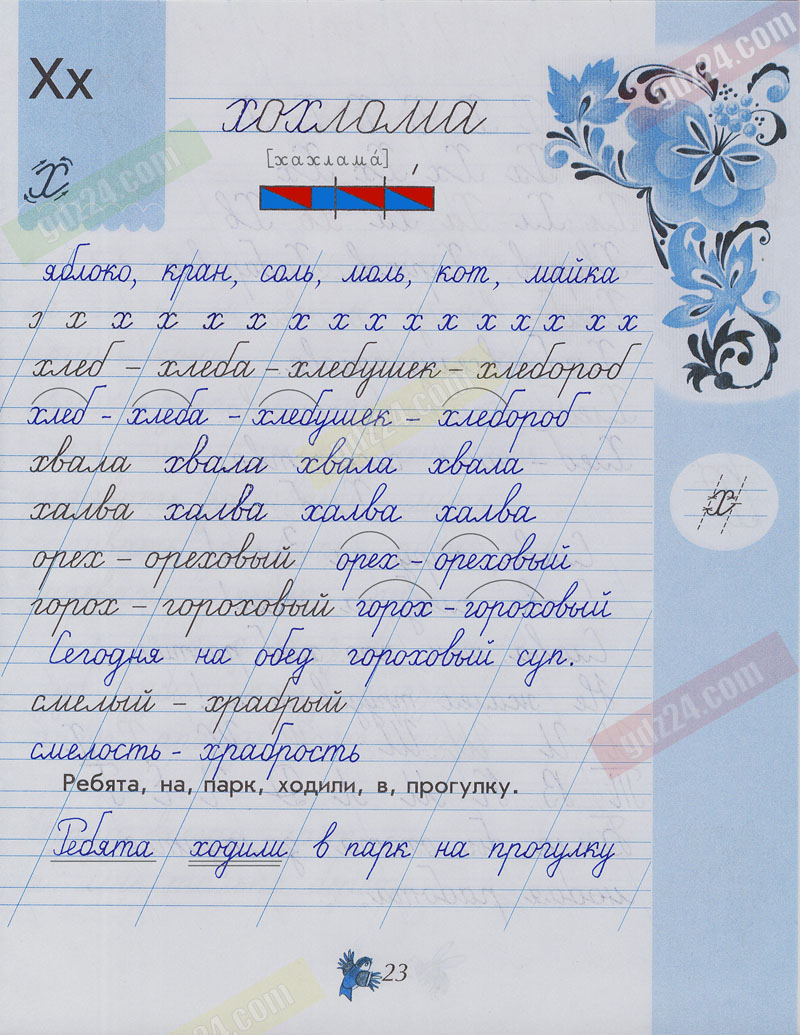 Хх
хохлома
[хахлама́]
х
яблоко, кран, соль, моль, кот, майка
х х х х х х х х х х х х х х х х
хлеб – хлеба – хлебушек – хлебороб
хлеб - хлеба - хлебушек - хлебороб
хвала хвала хвала хвала
халва халва халва халва
х
орех – ореховый орех - ореховый
горох – гороховый горох - гороховый
Сегодня на обед гороховый суп.
смелый – храбрый
смелость - храбрость
Ребята, на, парк, ходили, в, прогулку.
Ребята ходили в парк на прогулку
23
gdz24.com
gdz24.com
gdz24.com
gdz24.com
gdz24.com